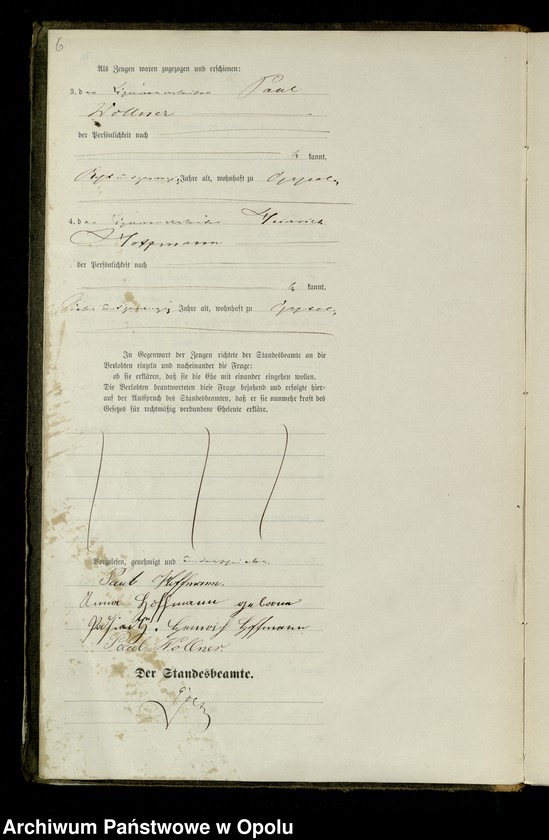 6
Als Zeugen waren zugezogen und erschienen:
3. der Zigarrenarbeiter Paul
Wollner
der Persönlichkeit nach
be kannt,
Jahre alt, wohnhaft zu Oppeln
4. der Zigarrenarbeiter Heinrich
Hoffmann
der Persönlichkeit nach
be kannt,
Jahre alt, wohnhaft zu Oppeln
In Gegenwart der Zeugen richtete der Standesbeamte an die
Verlobten einzeln und nacheinander die Frage:
ob sie erklären, daß sie die Ehe mit einander eingehen wollen.
Die Verlobten beantworteten diese Frage bejahend und erfolgte hier-
auf der Ausspruch des Standesbeamten, daß er sie nunmehr kraft des
Gesetzes für rechtmäßig verbundene Eheleute erkläre.
Vorgelesen, genehmigt und unterschrieben
Paul Hoffmann.
Anna Hoffmann geborene
Heinrich Hoffmann
Paul Wollner
Der Standesbeamte.
Archiwum Państwowe w Opolu